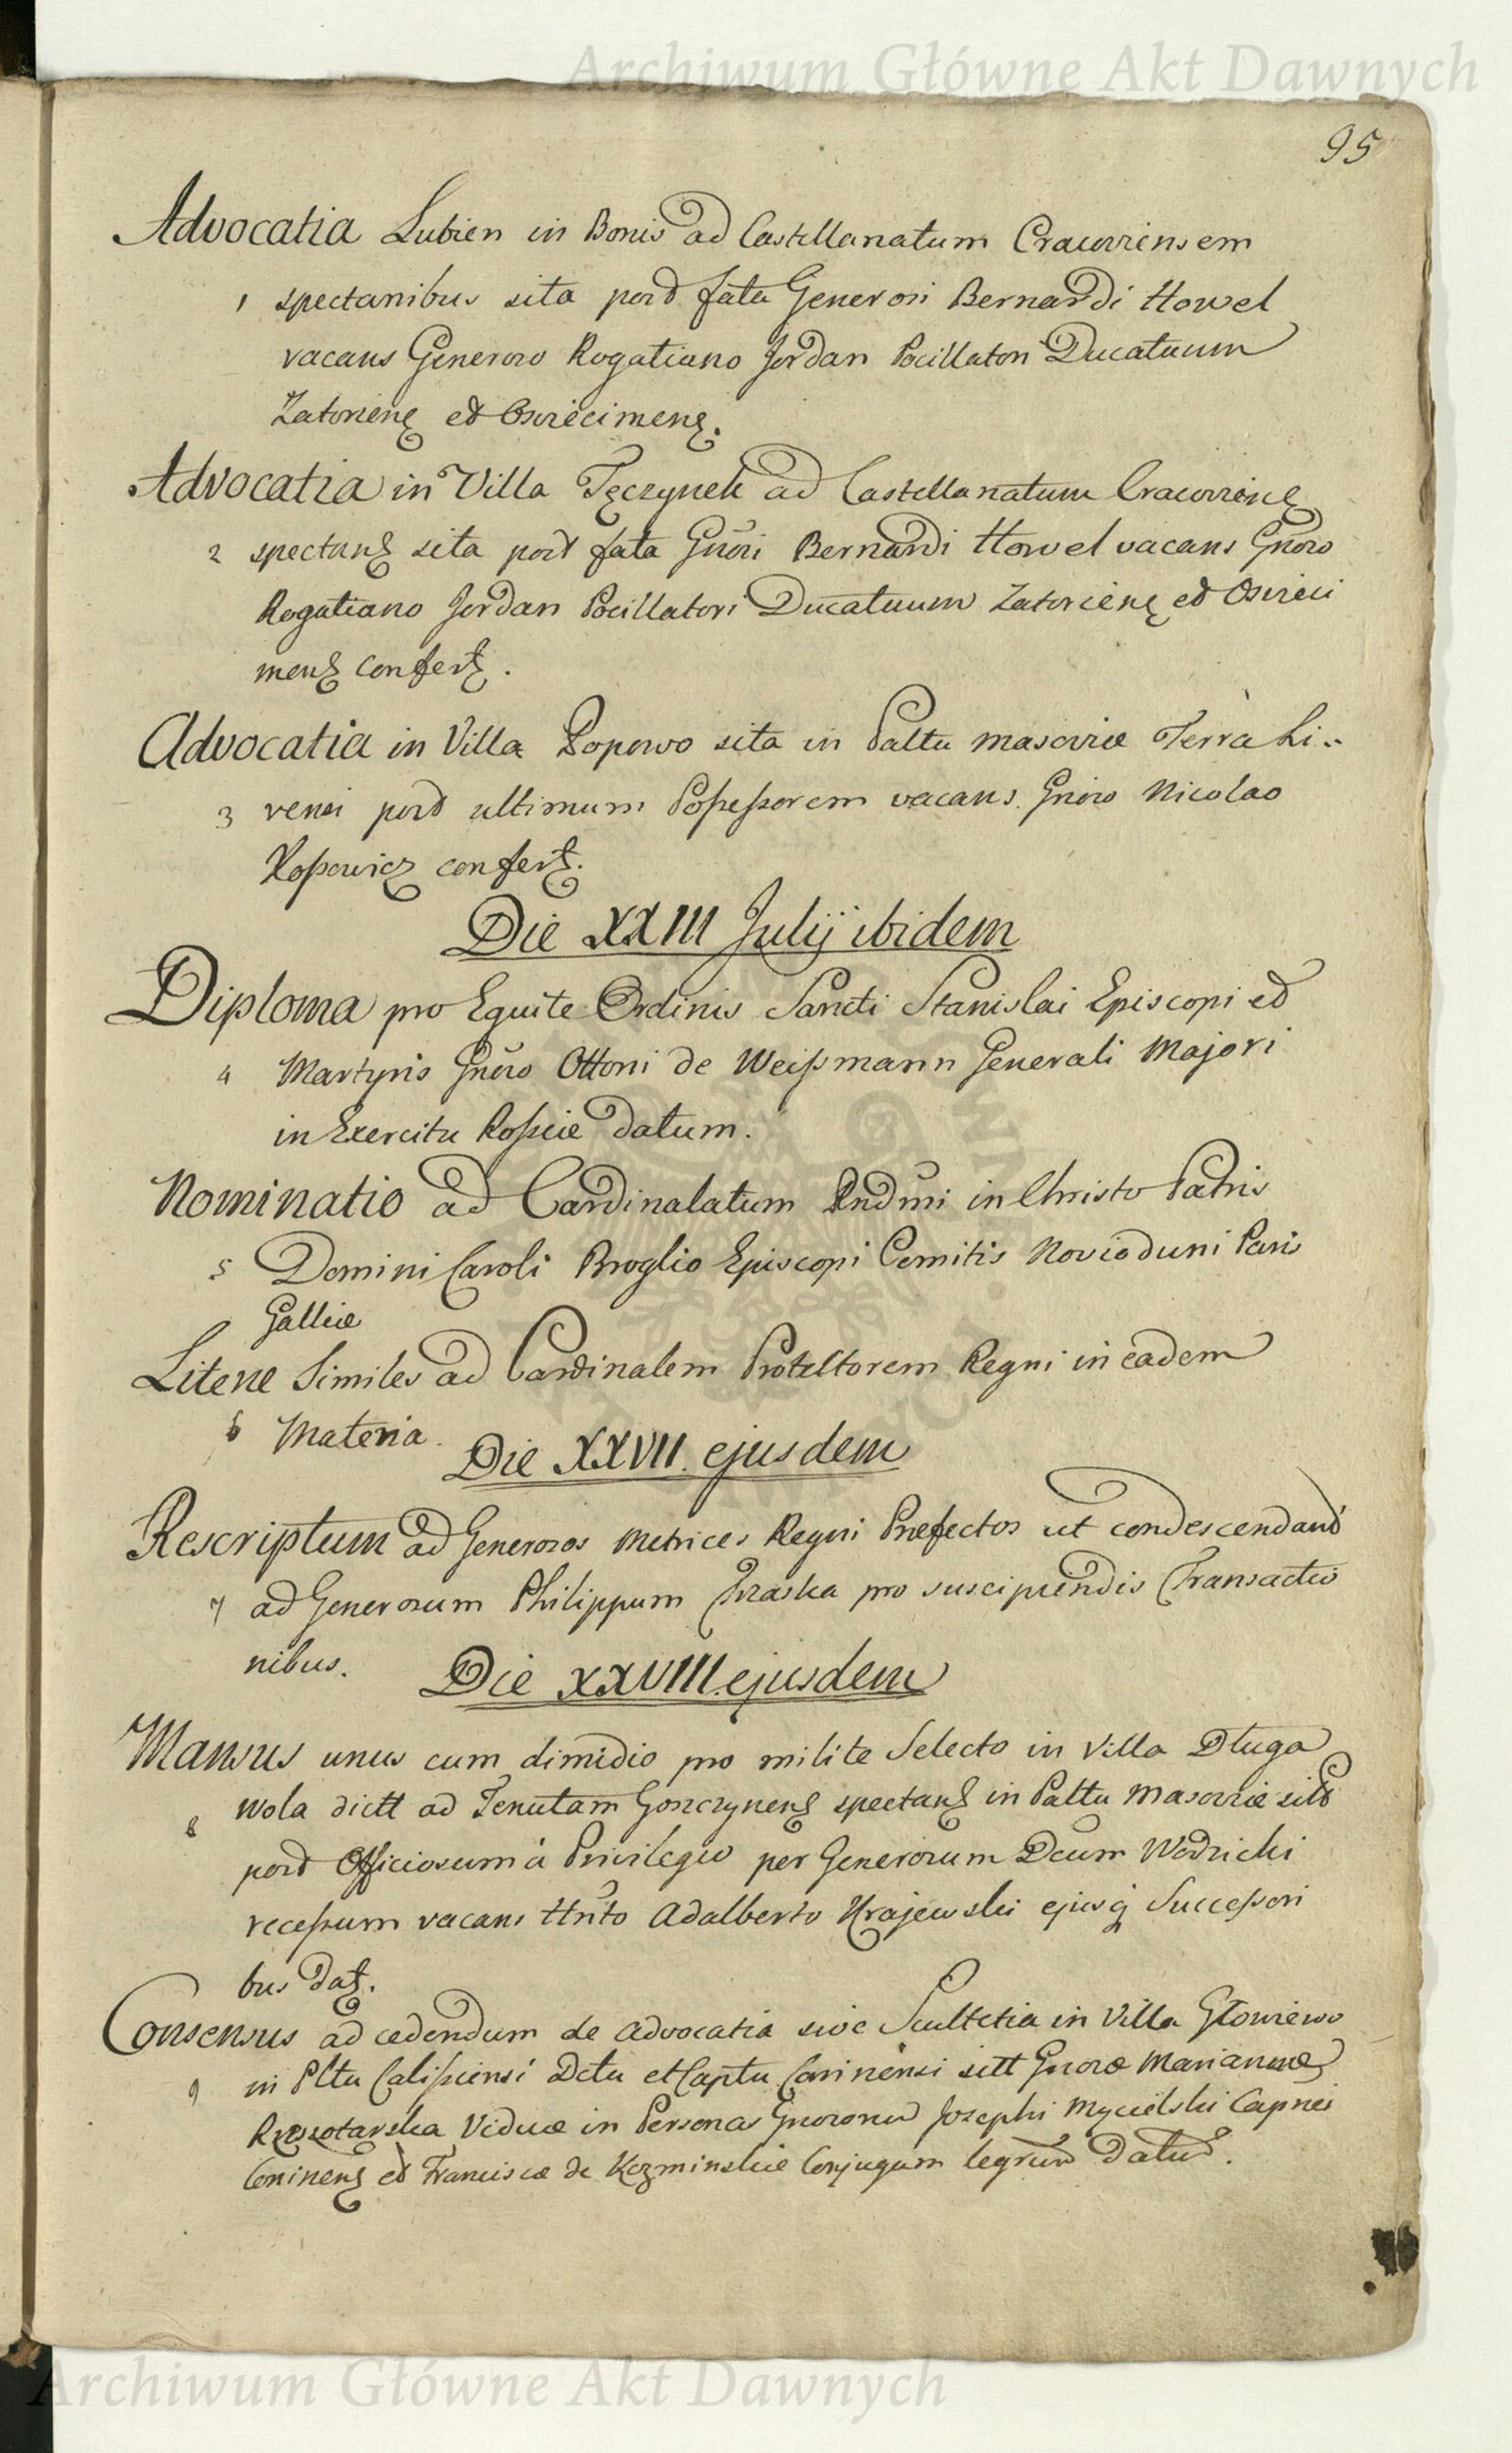 Archiwum Główne Akt Dawnych
95
Advocatia Lubien in Bonis ad Castellanatum Cracoviensem
1 spectantibus sita post fata Generosi Bernardi Howel
vacans Generoso Rogatiano Jordan Pocillatori Ducatuum
Zatoriens et Osviecimens.
Advocatia in Villa Tęczynek ad Castellanatum Cracoviens
2 spectans sita post fata Gnosi Bernardi Howel vacans Gnoso
Rogatiano Jordan Pocillatori Ducatuum Zatoriens et Osvieci
mens confert.
Advocatia in Villa Popowo sita in Paltu Masoviæ Terra Li-
3 vensi post ultimum Possessorem vacans Gnoso Nicolao
Kossowicz confert.
Die XXIII Julij ibidem
Diploma pro Equite Ordinis Sancti Stanislai Episcopi et
4 Martyris Gnoso Ottoni de Weissmann Generali Majori
in Exercitu Rossiæ datum.
Nominatio ad Cardinalatum Rndmi in Christo Patris
5 Domini Caroli Broglio Episcopi Comitis Novioduni Paris
Galliæ
Literæ Similes ad Cardinalem Protectorem Regni in eadem
6 Materia.
Die XXVII. ejusdem
Rescriptum ad Generosos Metrices Regni Præfectos ut condescendant
7 ad Generosum Philippum Jraska pro suscipiendis Transactio
nibus.
Die XXVIII. ejusdem
Mansus unus cum dimidio pro milite Selecto in Villa Długa
8 Wola dictt ad Tenutam Goszczynens spectans in Paltu Masoviæ sitt
post Officiosum à Privilegio per Generosum Deum Wodzicki
recessum vacans Hnto Adalberto Krajewski ejusq Successori
bus dat.
Consensus ad cedendum de Advocatia sive Scultetia in Villa Głowiewo
9 in Pltu Calissiensi Dctu et Captu Coninensi sitt Gnosæ Mariannæ
Rzeszotarska Viduæ in Personas Gnosorum Josephi Mycielski Capnei
Coninens et Franciscæ de Kozminskie Conjugum legrum datus.
Archiwum Główne Akt Dawnych